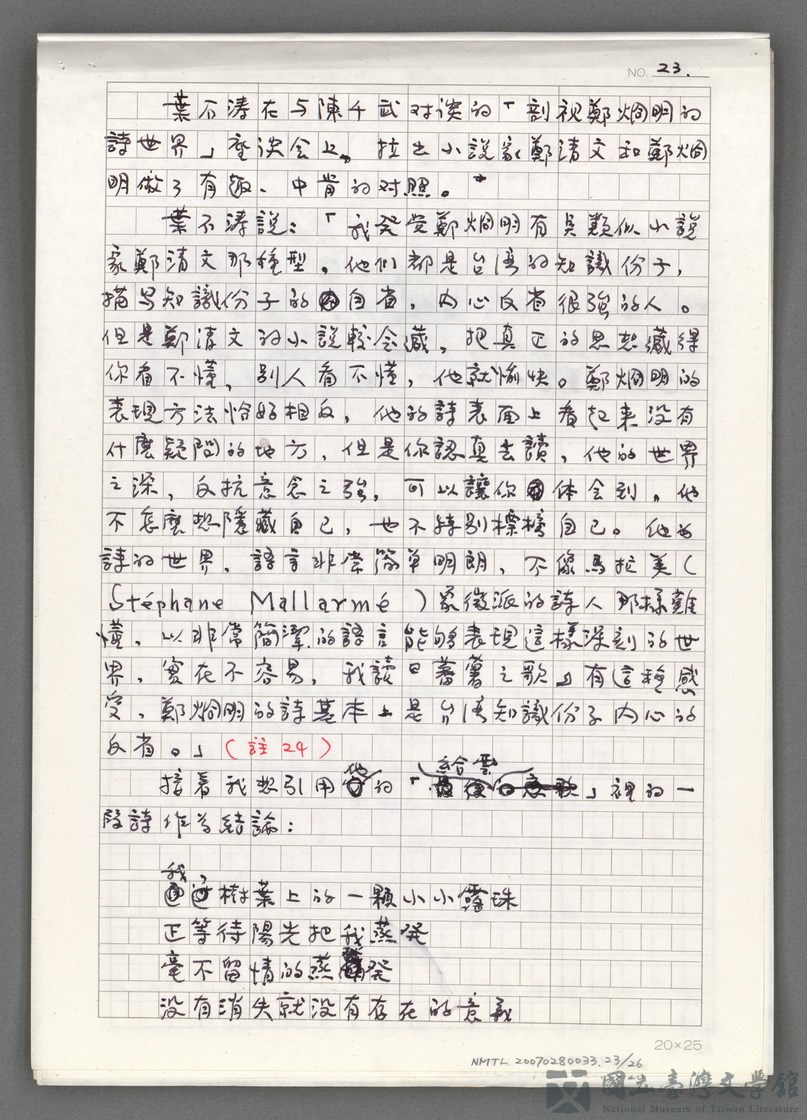 NO. 23.
葉石涛在与陳千武对谈的「剖視鄭烱明的
詩世界」座谈会上，拉出小說家鄭清文和鄭烱
明做了有趣、中肯的对照。
葉石涛說：「我発覚鄭烱明有臭類似小說
家鄭清文那種型，他们都是台湾的知識份子，
描写知識份子的自省，内心反省很強的人。
但是鄭清文的小說較会藏，把真正的思想藏得
你看不懂，别人看不懂，他就愉快。鄭烱明的
表現方法恰好相反，他的詩表面上看起来没有
什麼疑問的地方，但是你認真去讀，他的世界
之深，反抗意念之強，可以讓你体会到，他
不怎麼想隱藏自己，也不特别標榜自己。他的
詩的世界，語言非常简单明朗，不像馬拉美(
Stéphane Mallarmé)象徵派的詩人那様難
懂，以非常簡潔的語言能够表現這樣深刻的世
界，實在不容易，我讀『蕃薯之歌』有這種感
受，鄭烱明的詩基本上是台湾知識份子内心的
反省。」(註24)
接着我想引用他的「給雲」裡的一
段詩作為結論：
我，樹葉上的一顆小小露珠
正等待陽光把我蒸発
毫不留情的蒸発
没有消失就没有存在的意義
20×25
NMTL 20070280033.23/26
國立臺灣文學館
National Museum of Taiwan Literature